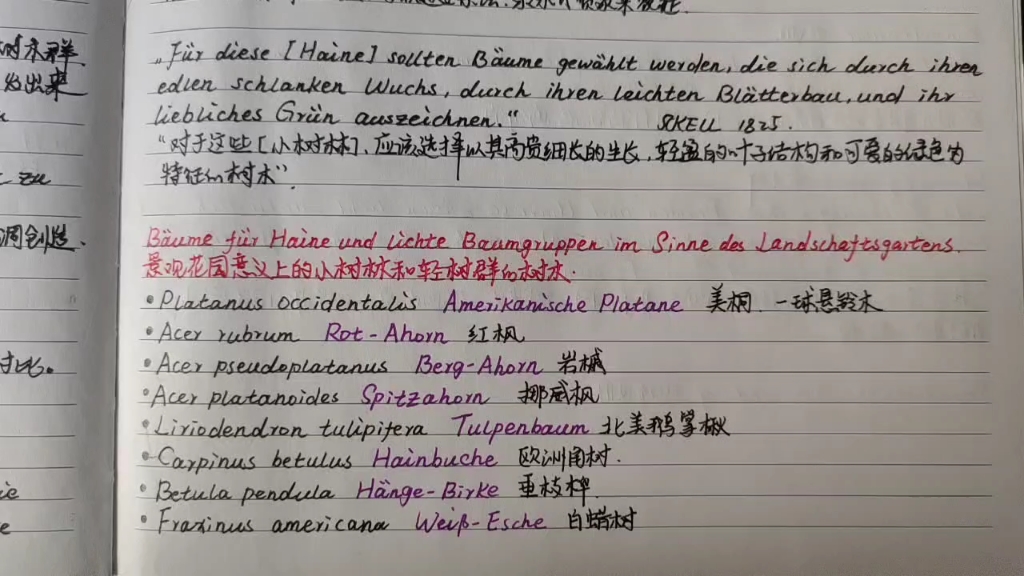 "Für diese [Haine] sollten Bäume gewählt werden, die sich durch ihren
edlen schlanken Wuchs, durch ihren leichten Blätterbau, und ihr
liebliches Grün auszeichnen."
SKELL 1825.
"对于这些[小树林], 应该选择以其高贵细长的生长, 轻盈的叶子结构和可爱的绿色为
特征的树木".
Bäume für Haine und lichte Baumgruppen im Sinne des Landschaftsgartens.
景观花园意义上的小树林和轻树群的树木.
• Platanus occidentalis Amerikanische Platane 美桐. 一球悬铃木
• Acer rubrum Rot-Ahorn 红枫
• Acer pseudoplatanus Berg-Ahorn 岩槭
• Acer platanoides Spitzahorn 挪威枫
• Liriodendron tulipifera Tulpenbaum 北美鹅掌楸
• Carpinus betulus Hainbuche 欧洲角树.
• Betula pendula Hänge-Birke 垂枝桦
• Fraxinus americana Weiß-Esche 白蜡树
树木群.
zu
调创造.
对比。
ie
e